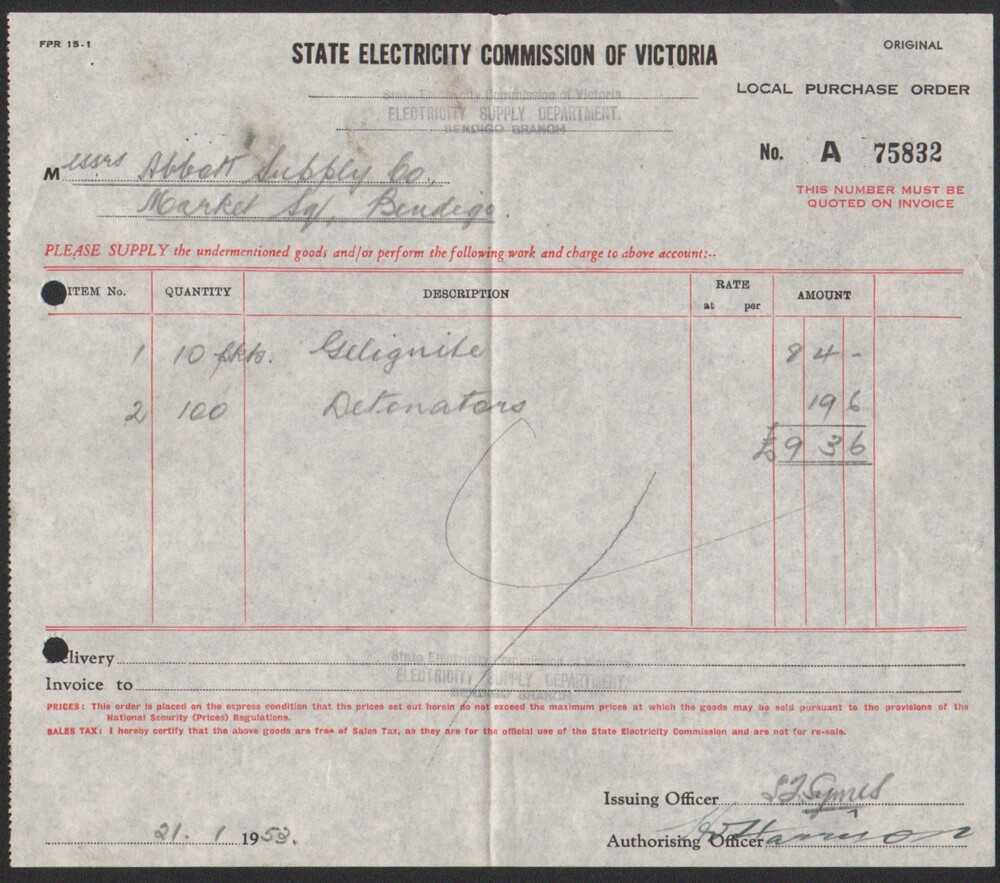 FPR 15-1
ORIGINAL
STATE ELECTRICITY COMMISSION OF VICTORIA
LOCAL PURCHASE ORDER
State Electricity Commission of Victoria
ELECTRICITY SUPPLY DEPARTMENT.
BENDIGO BRANCH
No. A 75832
THIS NUMBER MUST BE
QUOTED ON INVOICE
Messrs Abbott Supply Co.,
Market Sq, Bendigo.
PLEASE SUPPLY the undermentioned goods and/or perform the following work and charge to above account:--
ITEM No. QUANTITY DESCRIPTION RATE at per AMOUNT
1 10 pkts. Gelignite 8 4 -
2 100 Detonators 19 6
£9 3 6
Delivery
State Electricity Commission of Victoria
ELECTRICITY SUPPLY DEPARTMENT.
BENDIGO BRANCH
Invoice to
PRICES: This order is placed on the express condition that the prices set out herein do not exceed the maximum prices at which the goods may be sold pursuant to the provisions of the
National Security (Prices) Regulations.
SALES TAX: I hereby certify that the above goods are free of Sales Tax, as they are for the official use of the State Electricity Commission and are not for re-sale.
Issuing Officer Symes
21. 1 1953.
Authorising Officer Harrison